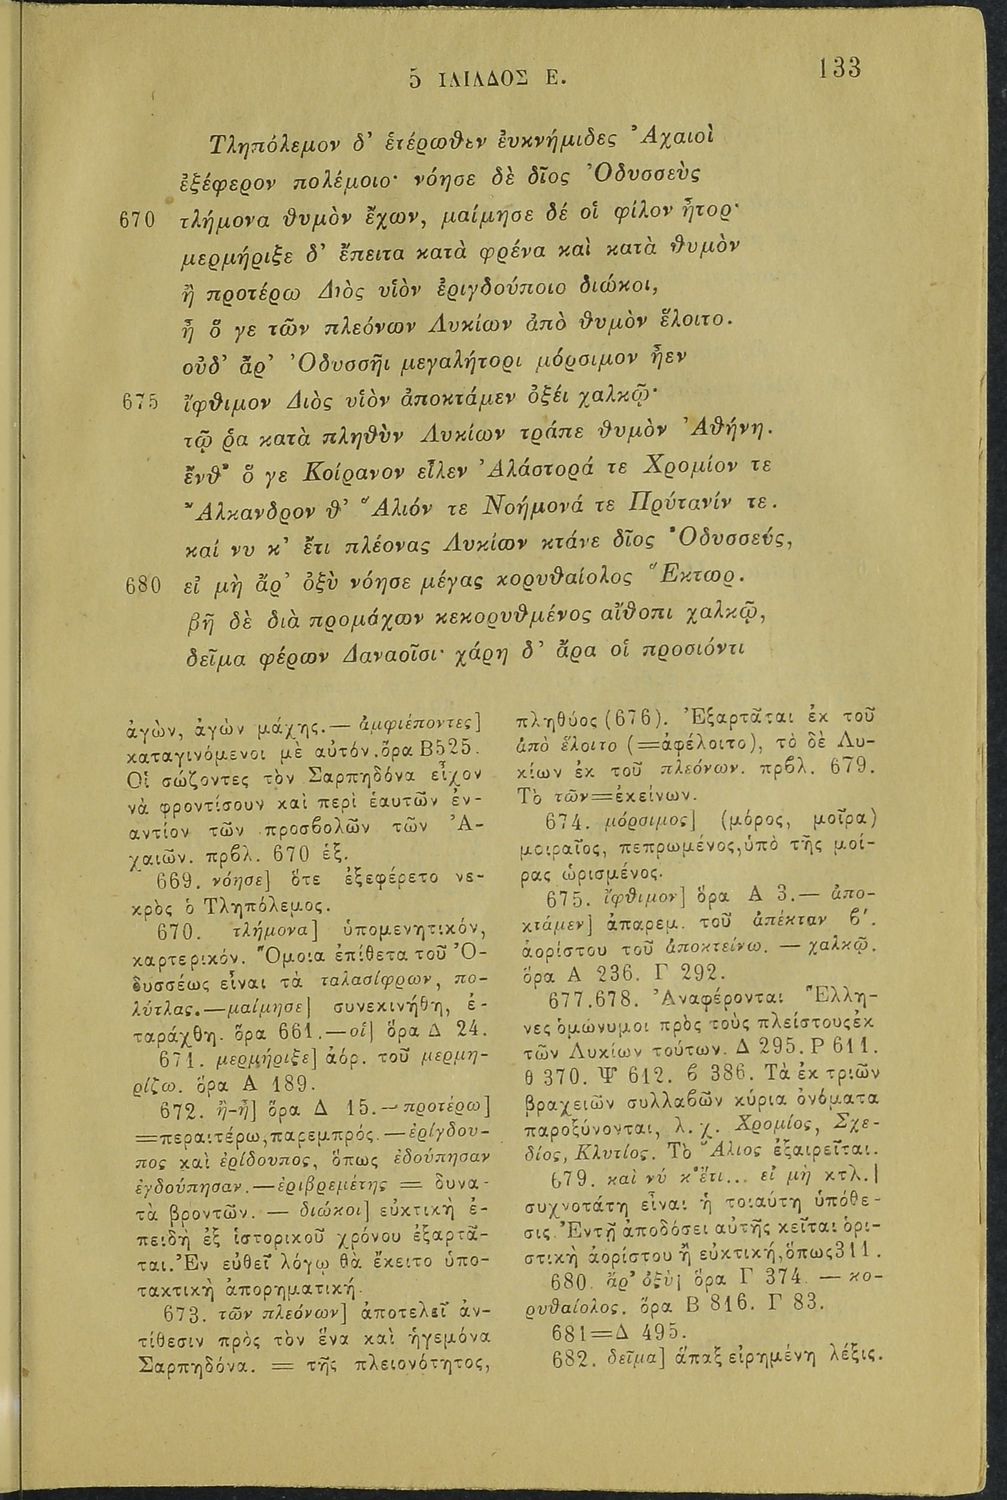 5 ΙΛΙΑΔΟΣ Ε.
133
Τληπόλεμον δ' ἑτέρωθεν ἐυκνήμιδες Ἀχαιοὶ
ἐξέφερον πολέμοιο· νόησε δὲ δῖος Ὀδυσσεὺς
670 τλήμονα θυμὸν ἔχων, μαίμησε δέ οἱ φίλον ἦτορ·
μερμήριξε δ' ἔπειτα κατὰ φρένα καὶ κατὰ θυμὸν
ἢ προτέρω Διὸς υἱὸν ἐριγδούποιο διώκοι,
ἦ ὅ γε τῶν πλεόνων Λυκίων ἀπὸ θυμὸν ἕλοιτο.
οὐδ' ἄρ' Ὀδυσσῆι μεγαλήτορι μόρσιμον ἦεν
675 ἴφθιμον Διὸς υἱὸν ἀποκτάμεν ὀξέι χαλκῷ·
τῷ ῥα κατὰ πληθὺν Λυκίων τράπε θυμὸν Ἀθήνη.
ἔνθ' ὅ γε Κοίρανον εἷλεν Ἀλάστορά τε Χρομίον τε
Ἄλκανδρον θ' Ἅλιόν τε Νοήμονά τε Πρύτανίν τε.
καί νυ κ' ἔτι πλέονας Λυκίων κτάνε δῖος Ὀδυσσεύς,
680 εἰ μὴ ἄρ' ὀξὺ νόησε μέγας κορυθαίολος Ἕκτωρ.
βῆ δὲ διὰ προμάχων κεκορυθμένος αἴθοπι χαλκῷ,
δεῖμα φέρων Δαναοῖσι· χάρη δ' ἄρα οἱ προσιόντι
ἀγὼν, ἀγὼν μάχης.— ἀμφιέποντες]
καταγινόμενοι μὲ αὐτόν.ὅρα Β525.
Οἱ σώζοντες τὸν Σαρπηδόνα εἶχον
νὰ φροντίσουν καὶ περὶ ἑαυτῶν ἐν-
αντίον τῶν προσβολῶν τῶν Ἀ-
χαιῶν. πρβλ. 670 ἑξ.
669. νόησε] ὅτε ἐξεφέρετο νε-
κρὸς ὁ Τληπόλεμος.
670. τλήμονα] ὑπομενητικόν,
καρτερικόν. Ὅμοια ἐπίθετα τοῦ Ὀ-
δυσσέως εἶναι τὰ ταλασίφρων, πο-
λύτλας.—μαίμησε] συνεκινήθη, ἐ-
ταράχθη. ὅρα 661.—οἱ] ὅρα Δ 24.
671. μερμήριξε] ἀόρ. τοῦ μερμη-
ρίζω. ὅρα Α 189.
672. ἢ-ἦ] ὅρα Δ 15.—προτέρω]
=περαιτέρω,παρεμπρός.—ἐρίγδου-
πος καὶ ἐρίδουπος, ὅπως ἐδούπησαν
ἐγδούπησαν.—ἐριβρεμέτης = δυνα-
τὰ βροντῶν. — διώκοι] εὐκτικὴ ἐ-
πειδὴ ἐξ ἱστορικοῦ χρόνου ἐξαρτᾶ-
ται.Ἐν εὐθεῖ λόγῳ θὰ ἔκειτο ὑπο-
τακτικὴ ἀπορηματική.
673. τῶν πλεόνων] ἀποτελεῖ ἀν-
τίθεσιν πρὸς τὸν ἕνα καὶ ἡγεμόνα
Σαρπηδόνα. = τῆς πλειονότητος,
πληθύος (676). Ἐξαρτᾶται ἐκ τοῦ
ἀπὸ ἕλοιτο (=ἀφέλοιτο), τὸ δὲ Λυ-
κίων ἐκ τοῦ πλεόνων. πρβλ. 679.
Τὸ τῶν=ἐκείνων.
674. μόρσιμος] (μόρος, μοῖρα)
μοιραῖος, πεπρωμένος,ὑπὸ τῆς μοί-
ρας ὡρισμένος.
675. ἴφθιμον] ὅρα Α 3.— ἀπο-
κτάμεν] ἀπαρεμ. τοῦ ἀπέκταν β'.
ἀορίστου τοῦ ἀποκτείνω. — χαλκῷ.
ὅρα Α 236. Γ 292.
677.678. Ἀναφέρονται Ἕλλη-
νες ὁμώνυμοι πρὸς τοὺς πλείστουςἐκ
τῶν Λυκίων τούτων. Δ 295. Ρ 611.
θ 370. Ψ 612. β 386. Τὰ ἐκ τριῶν
βραχειῶν συλλαβῶν κύρια ὀνόματα
παροξύνονται, λ. χ. Χρομίος, Σχε-
δίος, Κλυτίος. Τὸ Ἅλιος ἐξαιρεῖται.
679. καί νύ κ' ἔτι... εἰ μὴ κτλ.]
συχνοτάτη εἶναι ἡ τοιαύτη ὑπόθε-
σις. Ἐντῇ ἀποδόσει αὐτῆς κεῖται ὁρι-
στικὴ ἀορίστου ἢ εὐκτική,ὅπως311.
680. ἄρ' ὀξὺ] ὅρα Γ 374. — κο-
ρυθαίολος. ὅρα Β 816. Γ 83.
681=Δ 495.
682. δεῖμα] ἅπαξ εἰρημένη λέξις.